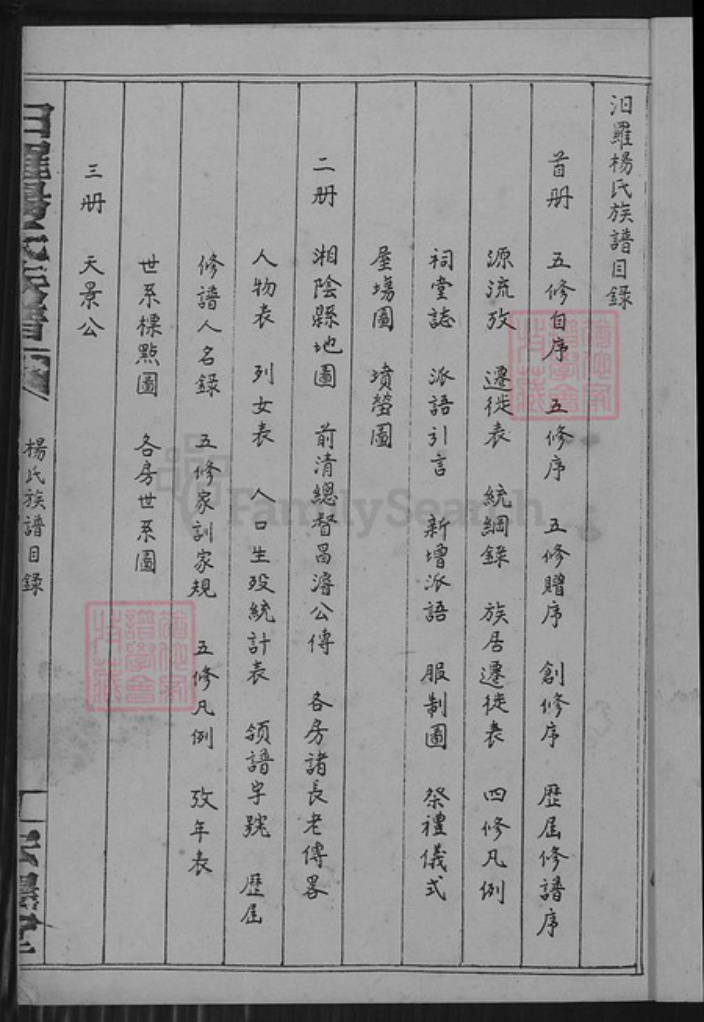 汨羅楊氏族譜目錄
首册　五修自序　五修序　五修贈序　創修序　歷屆修譜序
源流攷　遷徙表　統綱錄　族居遷徙表　四修凡例
祠堂誌　派語引言　新增派語　服制圖　祭禮儀式
屋塲圖　墳塋圖
二册　湘陰縣地圖　前清總督昌濬公傳　各房諸長老傳畧
人物表　列女表　人口生殁統計表　領譜字號　歷屆
修譜人名錄　五修家訓家規　五修凡例　攷年表
世系標點圖　各房世系圖
三册　天景公
汨羅楊氏族譜
楊氏族譜目錄
FamilySearch